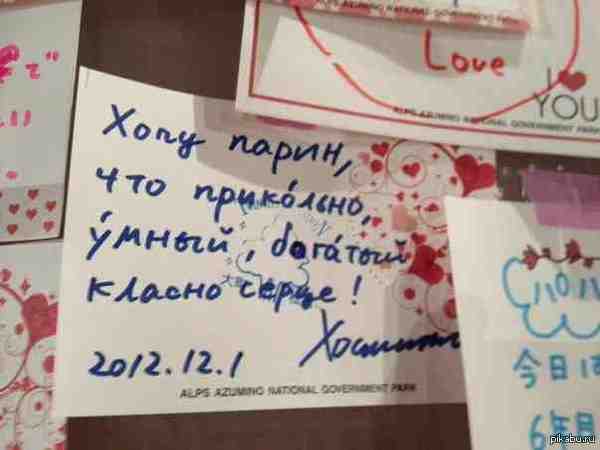 Love
I ♥ YOU
ALPS AZUMINO NATIONAL GOVERNMENT PARK
Хочу парин,
что прико́льно,
у́мный, бога́тый
класно серце!
2012.12.1
ALPS AZUMINO NATIONAL GOVERNMENT PARK
今日は
6年目
pikabu.ru